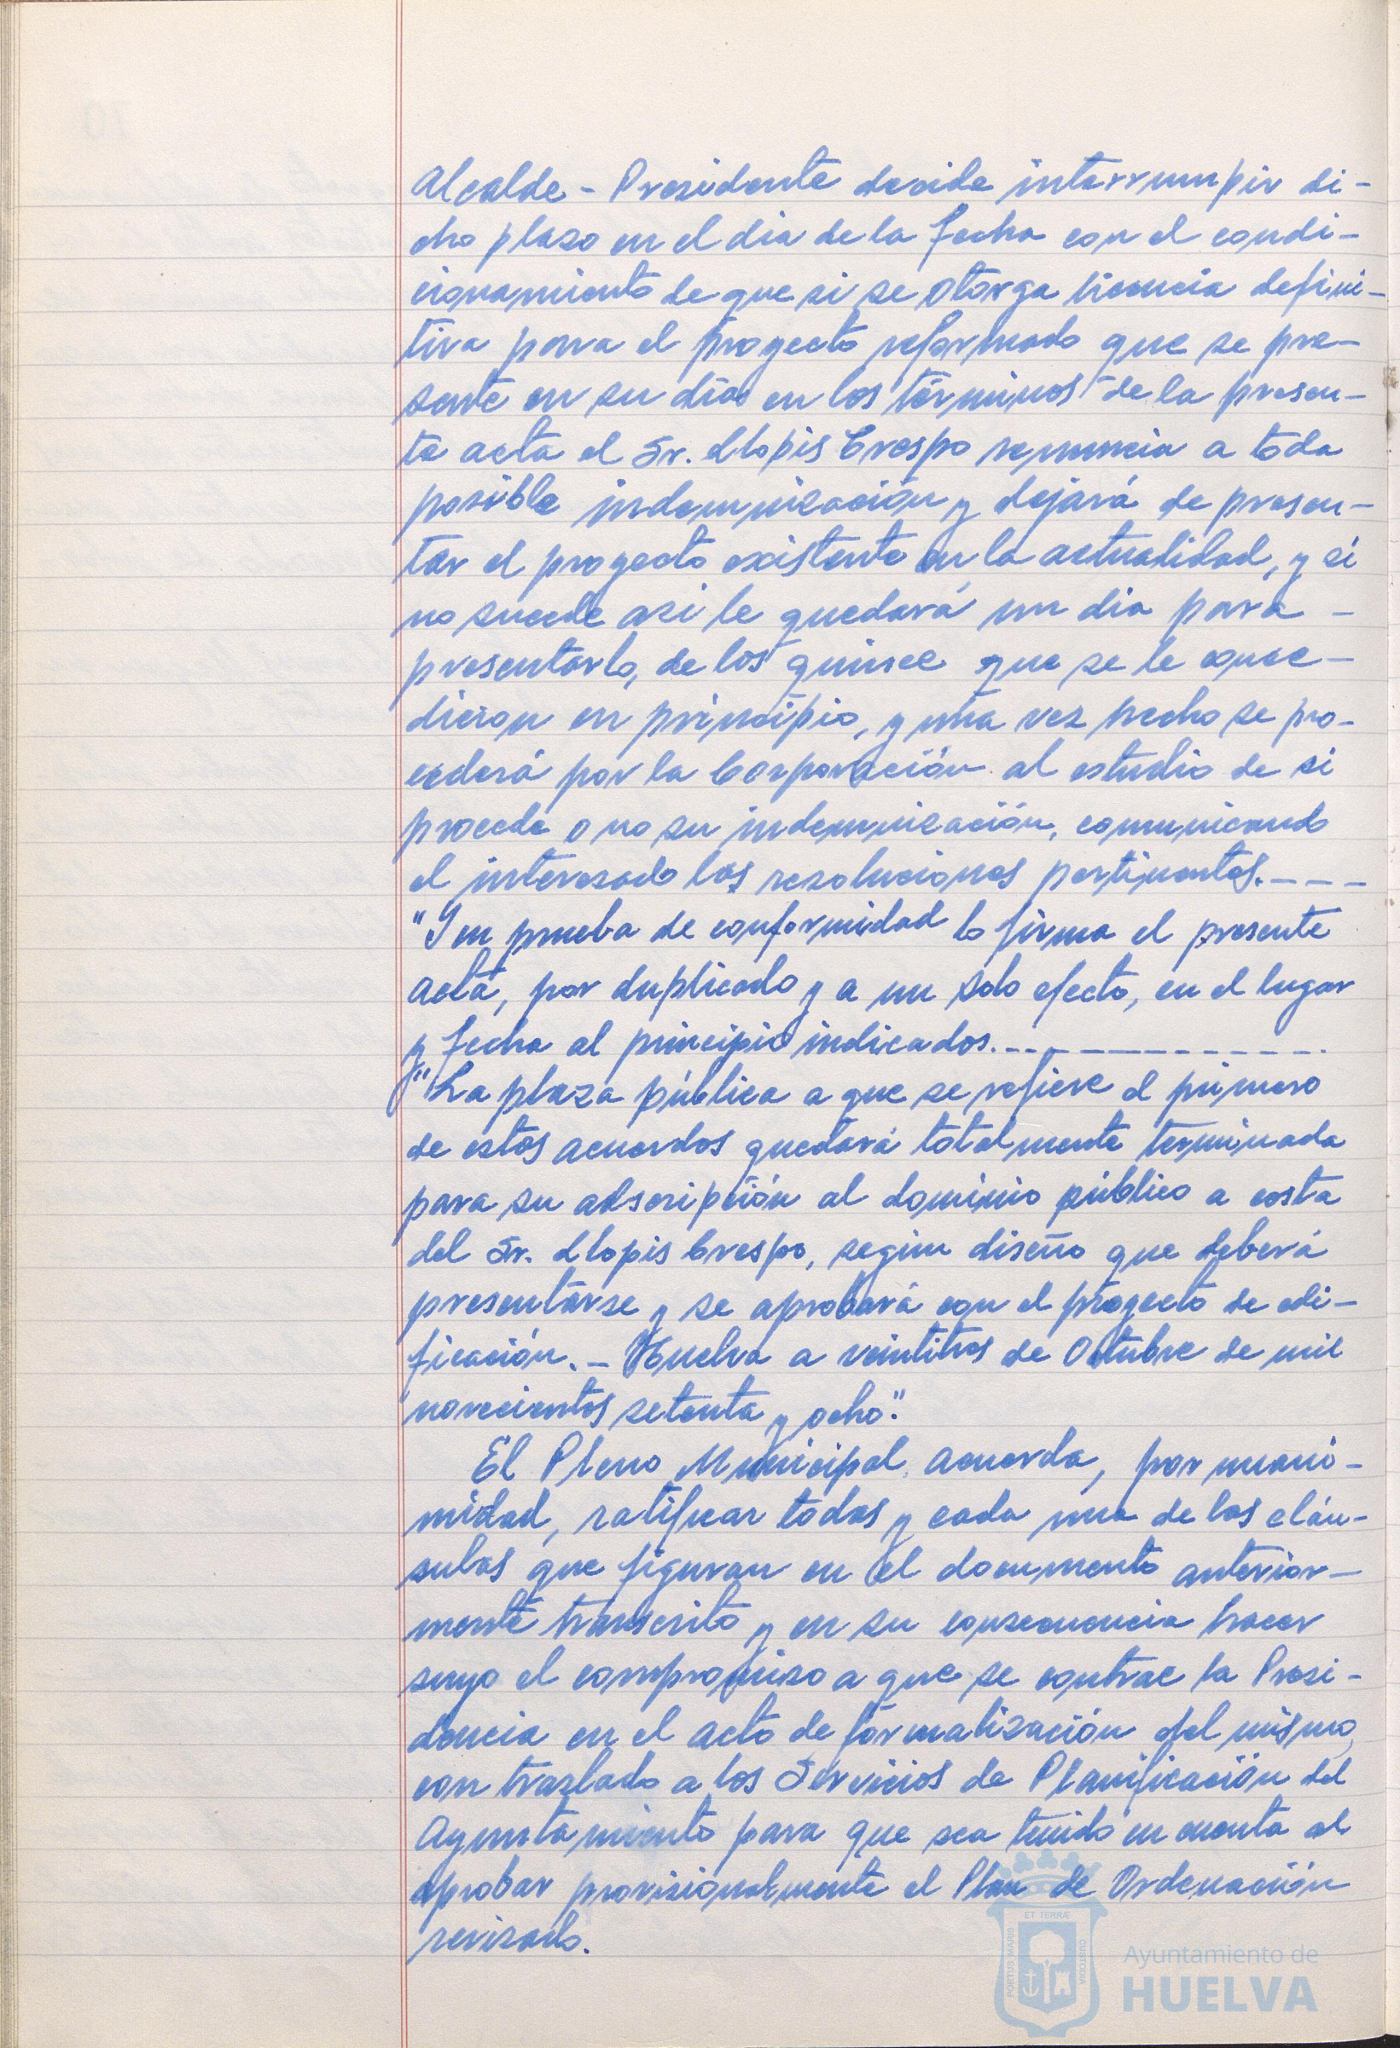 Alcalde - Presidente decide interrumpir di-
cho plazo en el dia de la fecha con el condi-
cionamiento de que si se otorga licencia defini-
tiva para el proyecto reformado que se pre-
sente en su dia en los términos de la presen-
te acta el Sr. Llopis Crespo renuncia a toda
posible indemnización y dejará de presen-
tar el proyecto existente en la actualidad, y si
no sucede asi le quedará un dia para -
presentarlo, de los quince que se le conce-
dieron en principio, y una vez hecho se pro-
cederá por la Corporación al estudio de si
procede o no su indemnización, comunicando
al interesado las resoluciones pertinentes.---
"Y en prueba de conformidad lo firma el presente
acta, por duplicado y a un solo efecto, en el lugar
y fecha al principio indicados.--------------
"La plaza pública a que se refiere el primero
de estos acuerdos quedará totalmente terminada
para su adscripción al dominio público a costa
del Sr. Llopis Crespo, segun diseño que deberá
presentarse y se aprobará con el proyecto de edi-
ficación.- Huelva a veintitres de Octubre de mil
novecientos setenta y ocho".
El Pleno Municipal acuerda, por unani-
midad, ratificar todas y cada una de las cláu-
sulas que figuran en el documento anterior-
mente transcrito y en su consecuencia hacer
suyo el compromiso a que se contrae la Presi-
dencia en el acto de formalización del mismo,
con traslado a los Servicios de Planificación del
Ayuntamiento para que sea tenido en cuenta al
aprobar provisionalmente el Plan de Ordenación
revisado.
ET TERRÆ
PORTUS MARIS
CUSTODIA
Ayuntamiento de
HUELVA